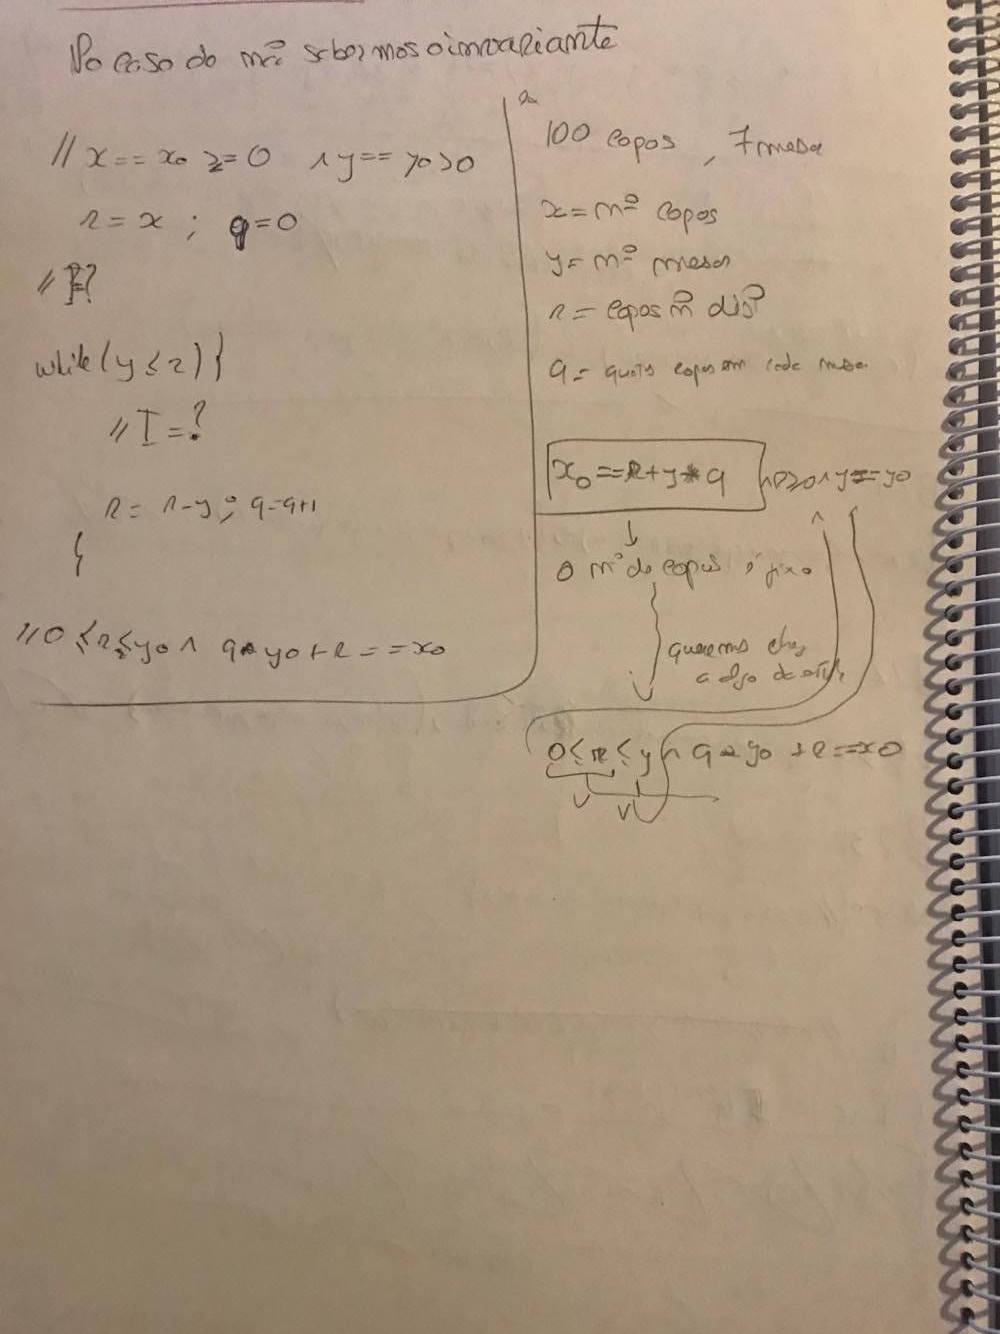 No caso do não sabermos o invariante
// x == x0 >= 0 ∧ y == y0 > 0
r = x ; q = 0
// I?
while (y ≤ r) {
// I = ?
r = r - y ; q = q+1
}
// 0 ≤ r ≤ y0 ∧ q * y0 + r == x0
100 copos , 7 mesas
x = nº copos
y = nº mesas
r = copos ñ dis?
q = quantos copos em cada mesa
x0 == r + y * q ∧ r ≥ 0 ∧ y == y0
↓
O nº de copos é fixo
queremos chegar
a algo de
0 ≤ r ≤ y ∧ q * y0 + r == x0